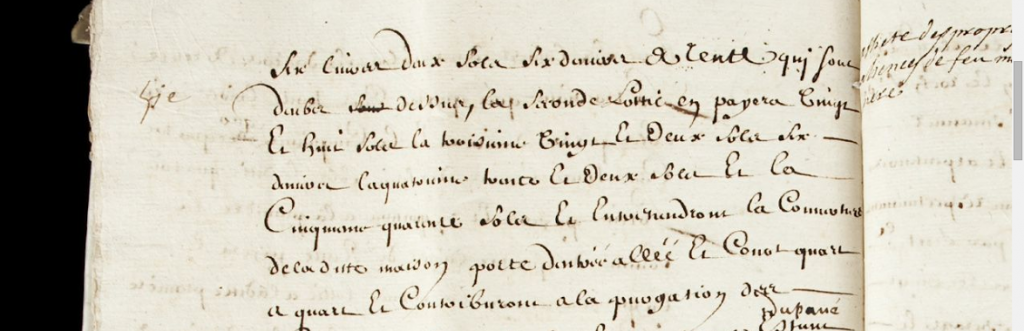 six livres deux sols six deniers de rente qui sont
deubz dessus, la seconde Lottie en payera Vingt
Et huit sols la troisieme Vingt Et Deux sols six
deniers la quatrieme trente Et Deux sols Et la
Cinquieme quarente sols Et Entretiendront la Couverture
de la dite maison porte d'entrée allée Et Conot quart
a quart Et Contriburont a la purgation des
du pavé